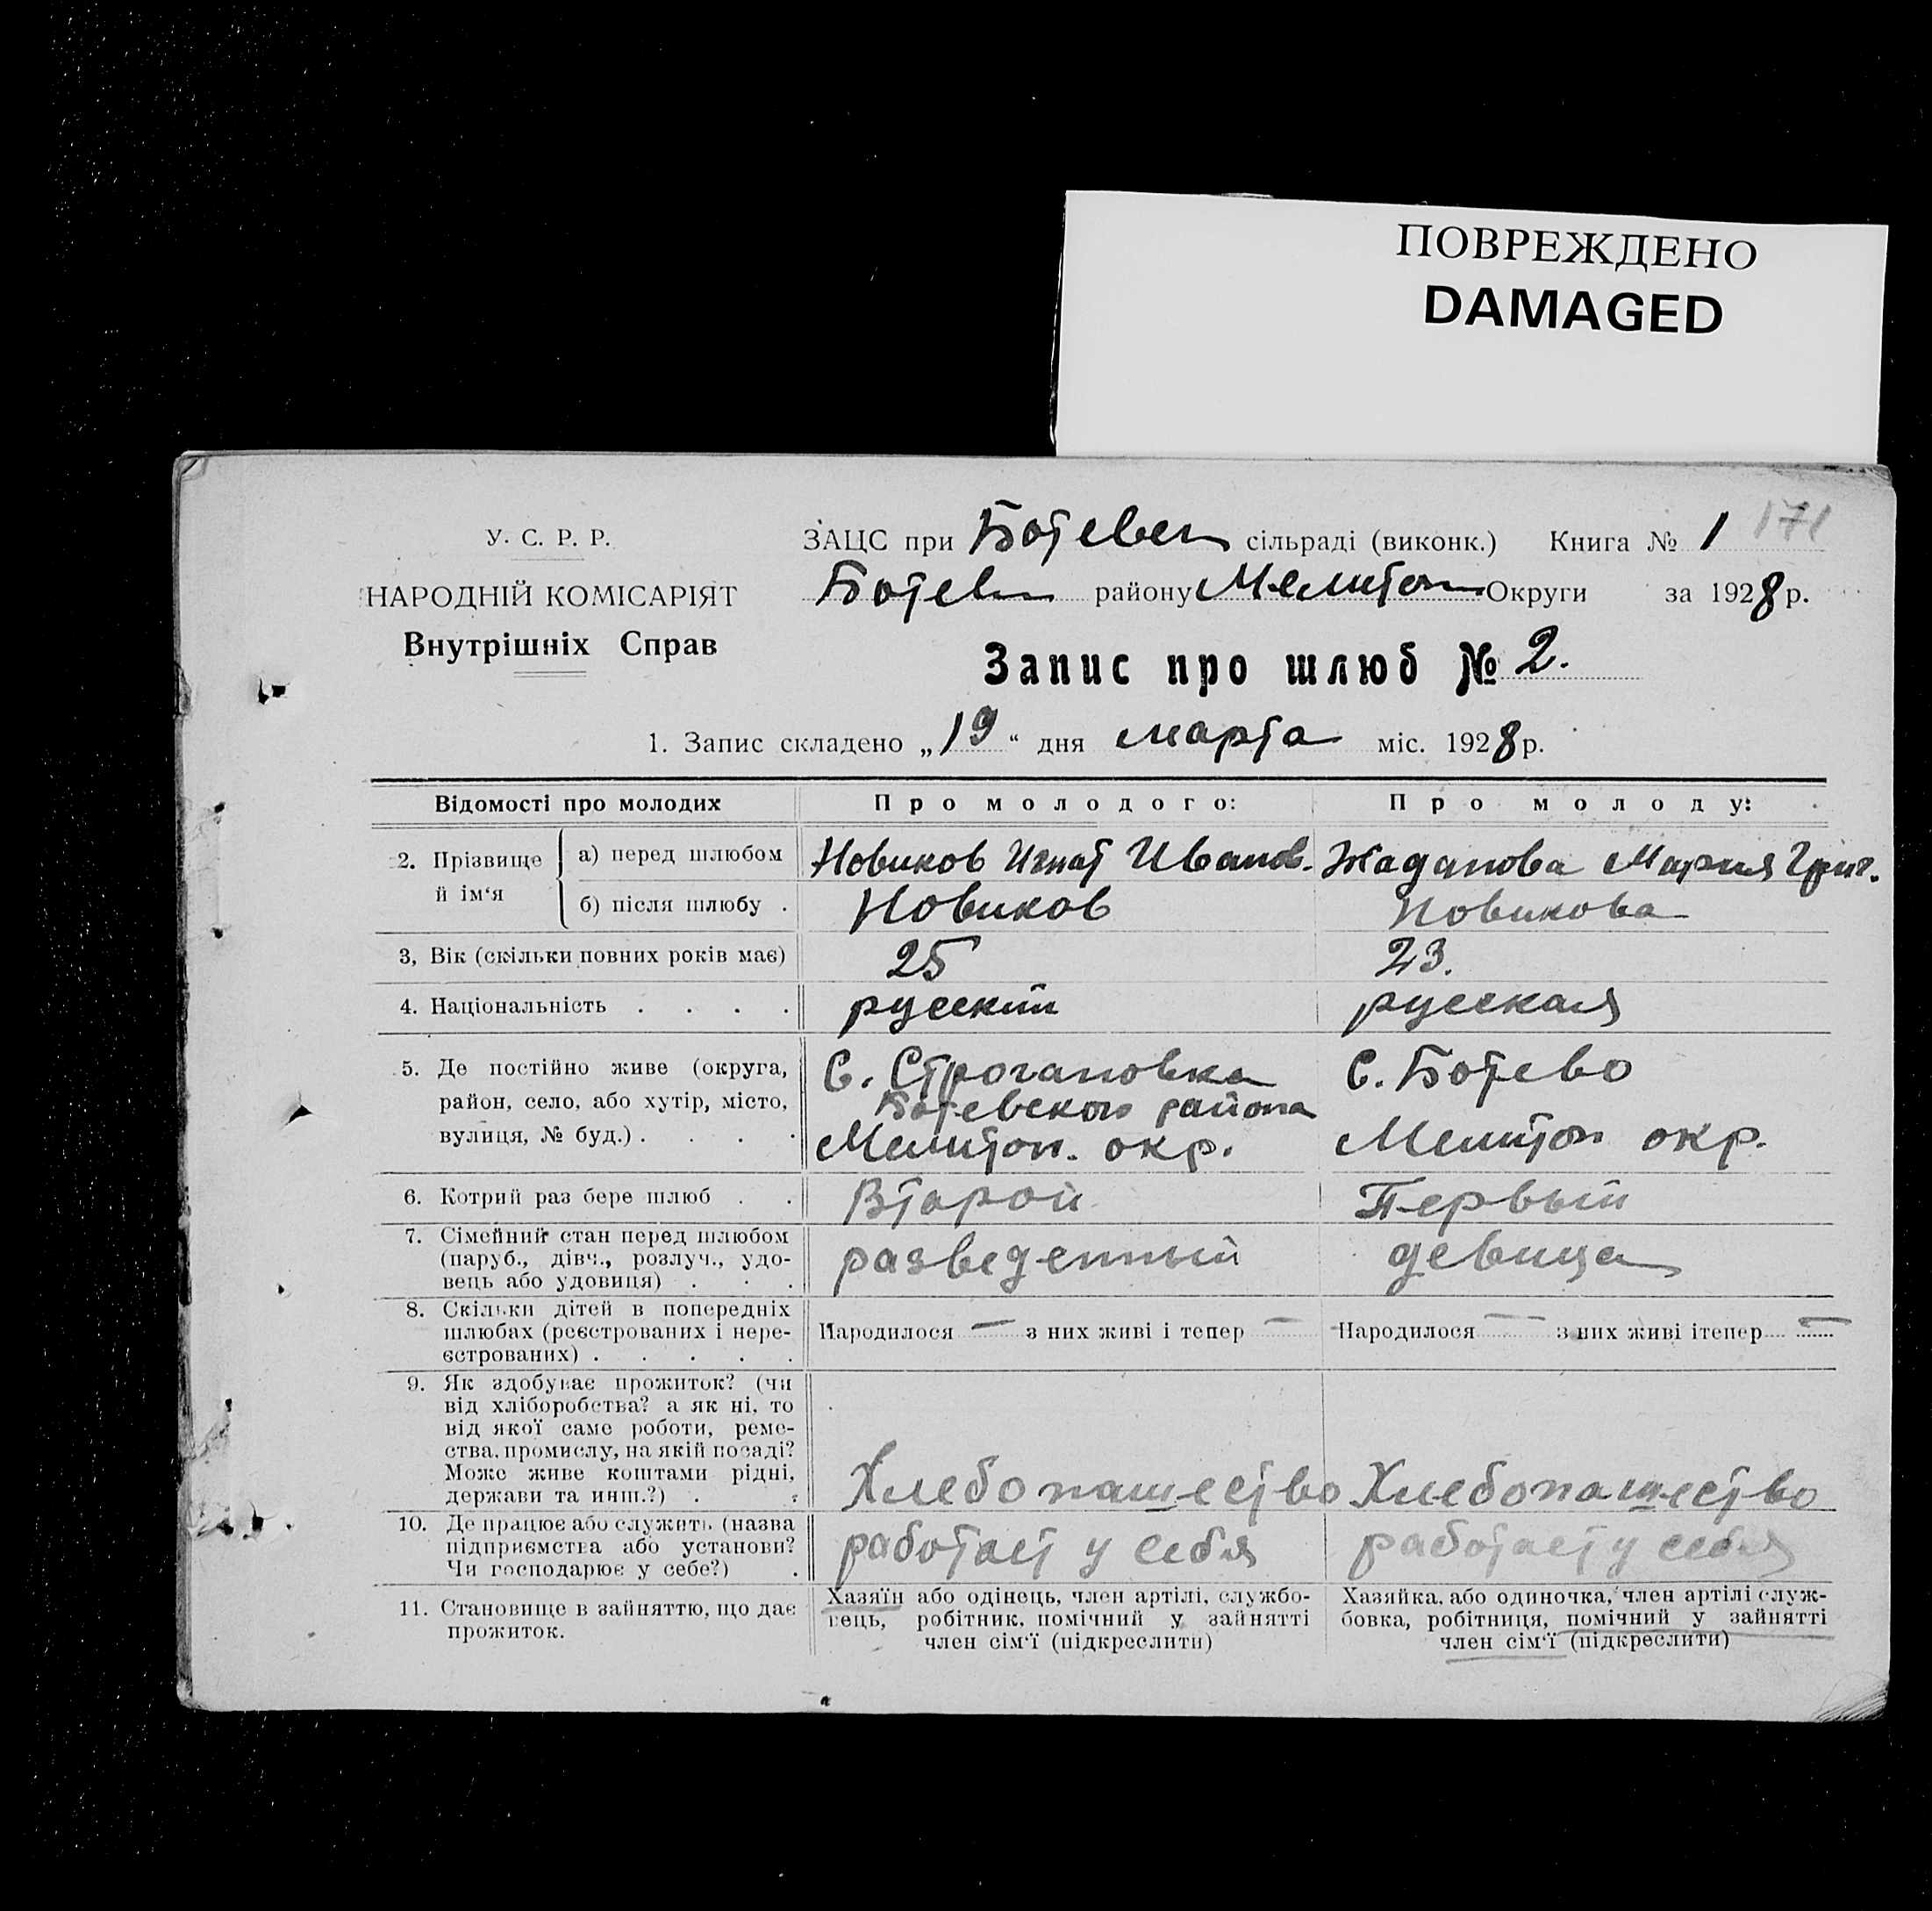 ПОВРЕЖДЕНО
DAMAGED
У. С. Р. Р.
НАРОДНІЙ КОМІСАРІЯТ
Внутрішніх Справ
ЗАЦС при Ботевск сільраді (виконк.) Книга № 1 171
Ботевск району Мелитоп Округи за 1928 р.
Запис про шлюб № 2.
1. Запис складено „19“ дня марта міс. 1928 р.
Відомості про молодих Про молодого: Про молоду:
2. Прізвище й ім‘я
а) перед шлюбом Новиков Игнат Иванов. Жаданова Мария Григ.
б) після шлюбу . Новиков Новикова
3, Вік (скільки повних років має) 25 23.
4. Національність . . . . русский русская
5. Де постійно живе (округа,
район, село, або хутір, місто,
вулиця, № буд.) . . . .
С. Строгановка
Ботевского района
Мелитоп. окр.
С. Ботево
Мелитоп окр.
6. Котрий раз бере шлюб . . Второй Первый
7. Сімейний стан перед шлюбом
(паруб., дівч., розлуч., удо-
вець або удовиця) . . .
разведенный девица
8. Скільки дітей в попередніх
шлюбах (реєстрованих і нере-
єстрованих) . . . . .
Народилося — з них живі і тепер —
Народилося — з них живі ітепер —
9. Як здобуває прожиток? (чи
від хліборобства? а як ні, то
від якої саме роботи, реме-
ства, промислу, на якій посаді?
Може живе коштами рідні,
держави та инш.?) . .
Хлебопашество Хлебопашество
10. Де працює або служить (назва
підприємства або установи?
Чи господарює у себе?) .
работает у себя работает у себя
11. Становище в зайняттю, що дає
прожиток.
Хазяїн або одінець, член артілі, службо-
вець, робітник, помічний у зайнятті
член сім‘ї (підкреслити)
Хазяйка, або одиночка, член артілі служ-
бовка, робітниця, помічний у зайнятті
член сім‘ї (підкреслити)